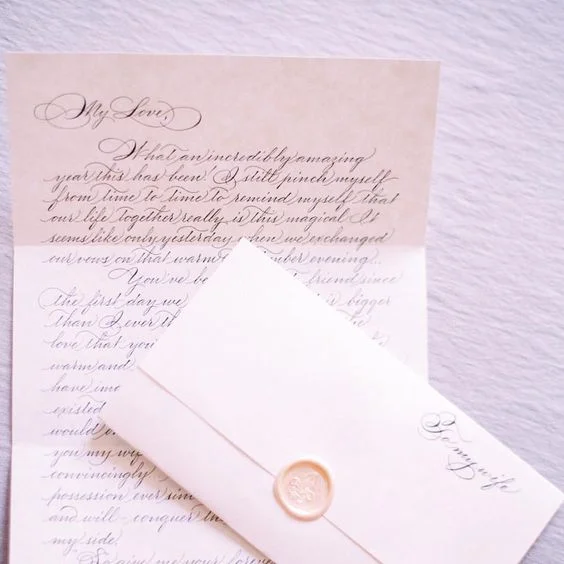 My Love,
What an incredibly amazing
year this has been! I still pinch myself
from time to time to remind myself that
our life together really is this magical. It
seems like only yesterday when we exchanged
our vows on that warm evening.
You've friend since
the first day we is bigger
than I ever
love that you
warm and
have
existed
would
you my wife
convincingly
possession ever
and will conquer
my side.
So give me your
To my wife